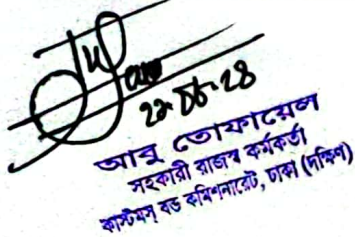 ২২-০৮-২৪
আবু তোফায়েল
সহকারী রাজস্ব কর্মকর্তা
কাস্টমস্ বন্ড কমিশনারেট, ঢাকা (দক্ষিণ)